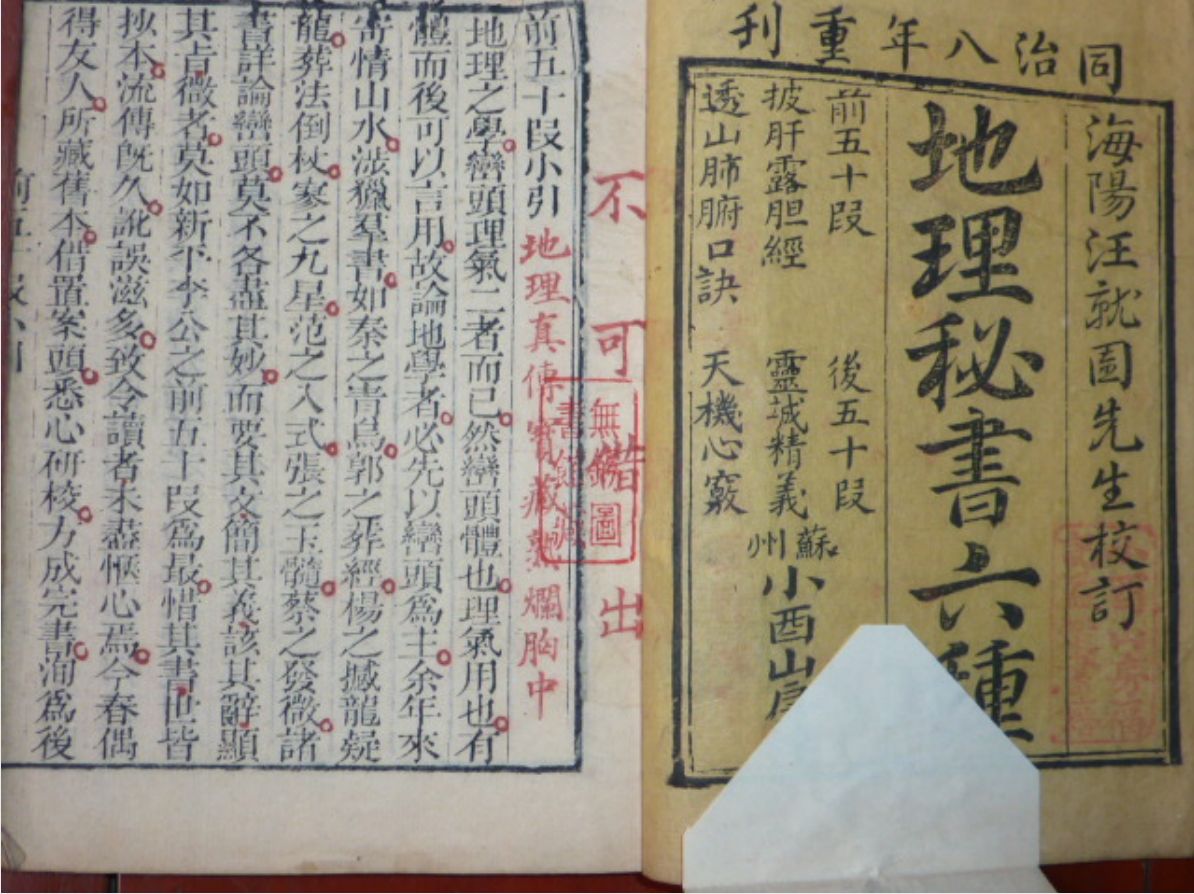 同治八年重刊
海陽汪就圖先生校訂
地理秘書六種
前五十叚　後五十叚
披肝露胆經　靈誠精義
透山肺腑口訣　天機心竅
蘇州小酉山
不可借出
無錫圖書館藏
前五十叚小引
地理真傳寶藏熟爛胸中
地理之學巒頭理氣二者而已然巒頭體也理氣用也有
體而後可以言用故論地學者必先以巒頭爲主余年來
寄情山水漁獵羣書如秦之青烏郭之葬經楊之撼龍疑
龍葬法倒杖寥之九星范之入式張之玉髓蔡之發微諸
書詳論巒頭莫不各盡其妙而要其文簡其義該其辭顯
其旨微者莫如新平李公之前五十叚爲最惜其書世皆
抄本流傳旣久訛誤滋多致令讀者未盡愜心焉今春偶
得友人所藏舊本借置案頭悉心研校乃成完書洵爲後
前五十叚小引